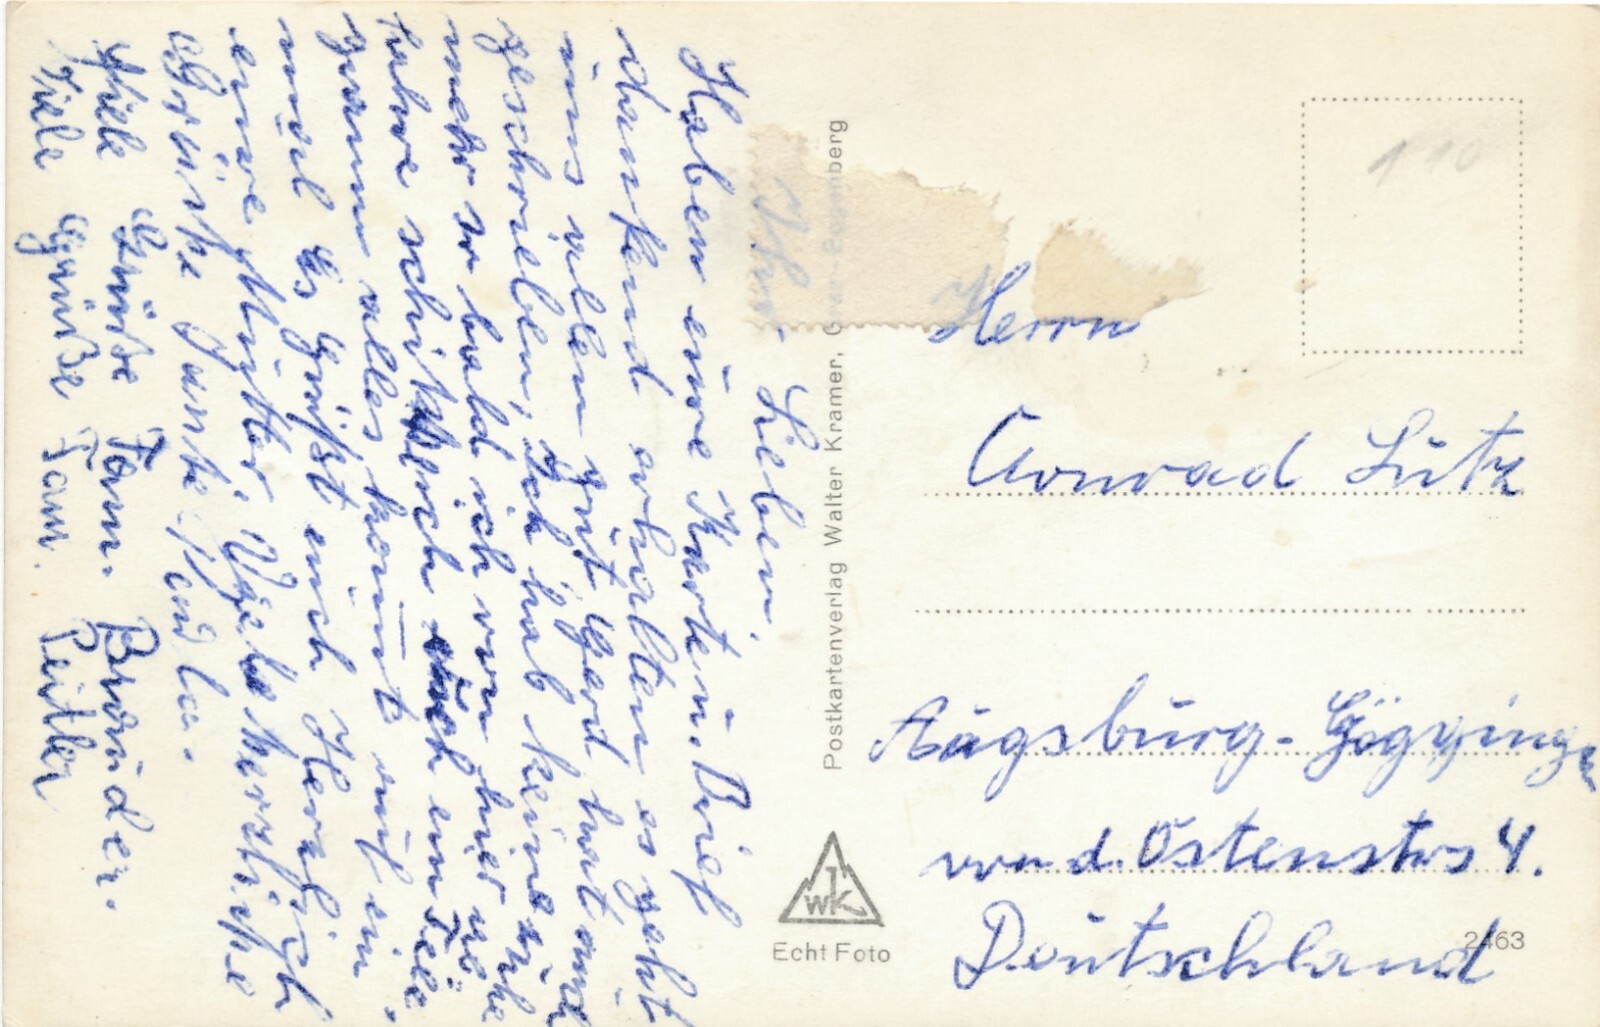 Ihr Lieben.
Haben eure Karte u. Brief
dankend erhalten es geht
uns allen gut Gerd hat und
geschrieben, Ich hab keine ruhe
mehr so bald ich von hier
fahre schick ich euch ein Tele
gramm alles kommt auf ein
mal Es Grüßt euch Herzlich
eure Mutter. Viele herzliche
Grüße Tante
Viele Grüße Fam. Brounder.
Viele Grüße Fam. Peitler
Postkartenverlag Walter Kramer, Graz-
WK
Echt Foto
Herrn
Conrad Lutz
Augsburg-Göggingen
von d. Ostenstrs 4.
Deutschland
2463
110